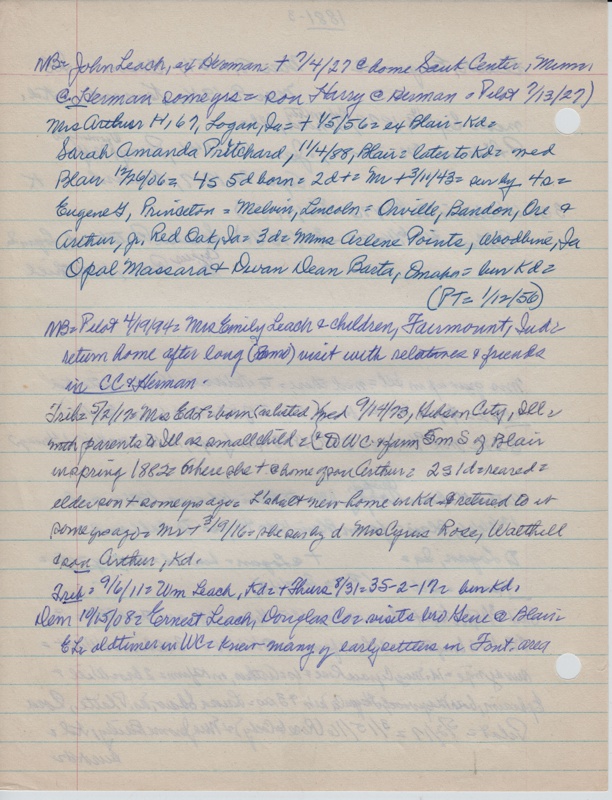 NB= John Leach, ex Herman + 7/4/27 @ home Sauk Center, Minn,
@ Herman some yrs = son Harry @ Herman = Pilot 7/13/27)
Mrs Arthur H, 67, Logan, Ia = + 1/5/56 = ex Blair = Kd =
Sarah Amanda Pritchard, 11/4/88, Blair = later to Kd = wed
Blair 12/26/06 = 4s 5d born = 2d + = Mr + 3/11/43 = sur by 4s =
Eugene G, Princeton = Melvin, Lincoln = Orville, Bandon, Ore &
Arthur, Jr, Red Oak, Ia = 3d = Mmes Arlene Points, Woodbine, Ia
Opal Massara & Dwan Dean Barta, Omaha = bur Kd =
(PT = 1/12/56)
NB = Pilot 4/19/94 = Mrs Emily Leach & children, Fairmount, Ind =
return home after long visit with relatives & friends
in CC & Herman.
Trib = 5/2/17 = Mrs East = born (as listed) wed 9/14/73, Hudson City, Ill =
with parents to Ill as small child = to WC & farm 5 mi S of Blair
in spring 1882 = where she + @ home of son Arthur = 2s 1d = reared =
elder son + some yrs ago = L's built new home in Kd & retired to it
some yrs ago = Mr + 3/9/16 = she sur by d Mrs Cyrus Rose, Walthill
& son Arthur, Kd.
Trib = 9/6/11 = Wm Leach, Kd = + Thurs 8/31 = 35-2-17 = bur Kd.
Dem 10/15/08 = Earnest Leach, Douglas Co = visits bro Here @ Blair
EL = old timer in WC = knew many of early settlers in Font. area